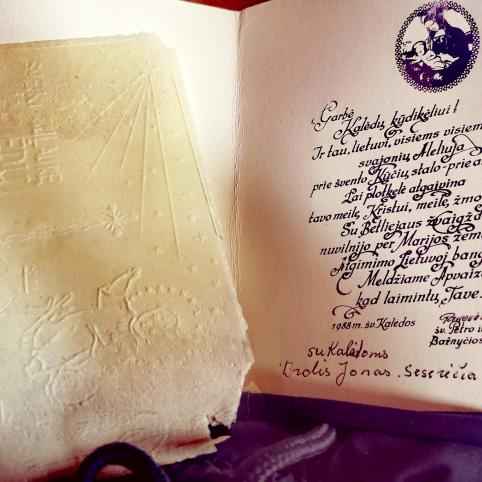 Garbė
Kalėdų kūdikėliui!
Ir tau, lietuvi, visiems visiem
svajonių Aleliuja
prie švento Kūčių stalo-prie a
Lai plotkelė algaivina
tavo meilę Kristui, meilę žmo
Su Betliejaus žvaigžd
nuvilnijo per Marijos žem
Atgimimo Lietuvoj bang
Meldžiame Apvaiz
kad laimintų Tave.
1988 m. šv. Kalėdos
šv. Petro ir
Bažnyčios
su Kalėdoms
Brolis Jonas.